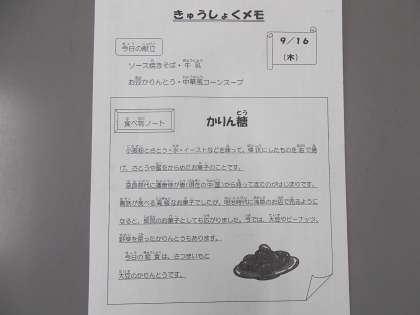 きゅうしょくメモ
今日の献立
9／16
（木）
ソース焼きそば・牛乳
お豆かりんとう・中華風コーンスープ
食べ物ノート
かりん糖
小麦粉とさとう・水・イーストなどを練って、棒状にしたものを油で揚
げ、さとうや蜜をからめたお菓子のことです。
奈良時代に遣唐使が唐（現在の中国）から持って来たのがはじまりです。
貴族が食べる高級なお菓子でしたが、明治時代に浅草のお店で売るように
なると、庶民のお菓子としても広がりました。今では、大豆やピーナッツ、
野菜を使ったかりんとうもあります。
今日の給食は、さつまいもと
大豆のかりんとうです。